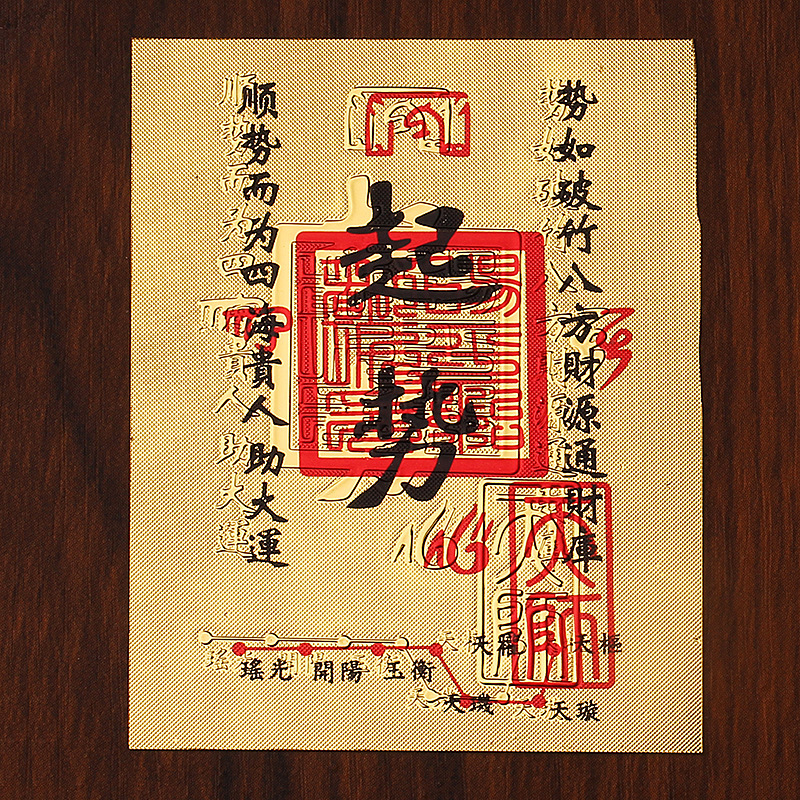 势如破竹八方财源通财庫
起势
顺势而为四海貴人助大運
天師
瑶光 開陽 玉衡 天權 天樞
天璣 天璇